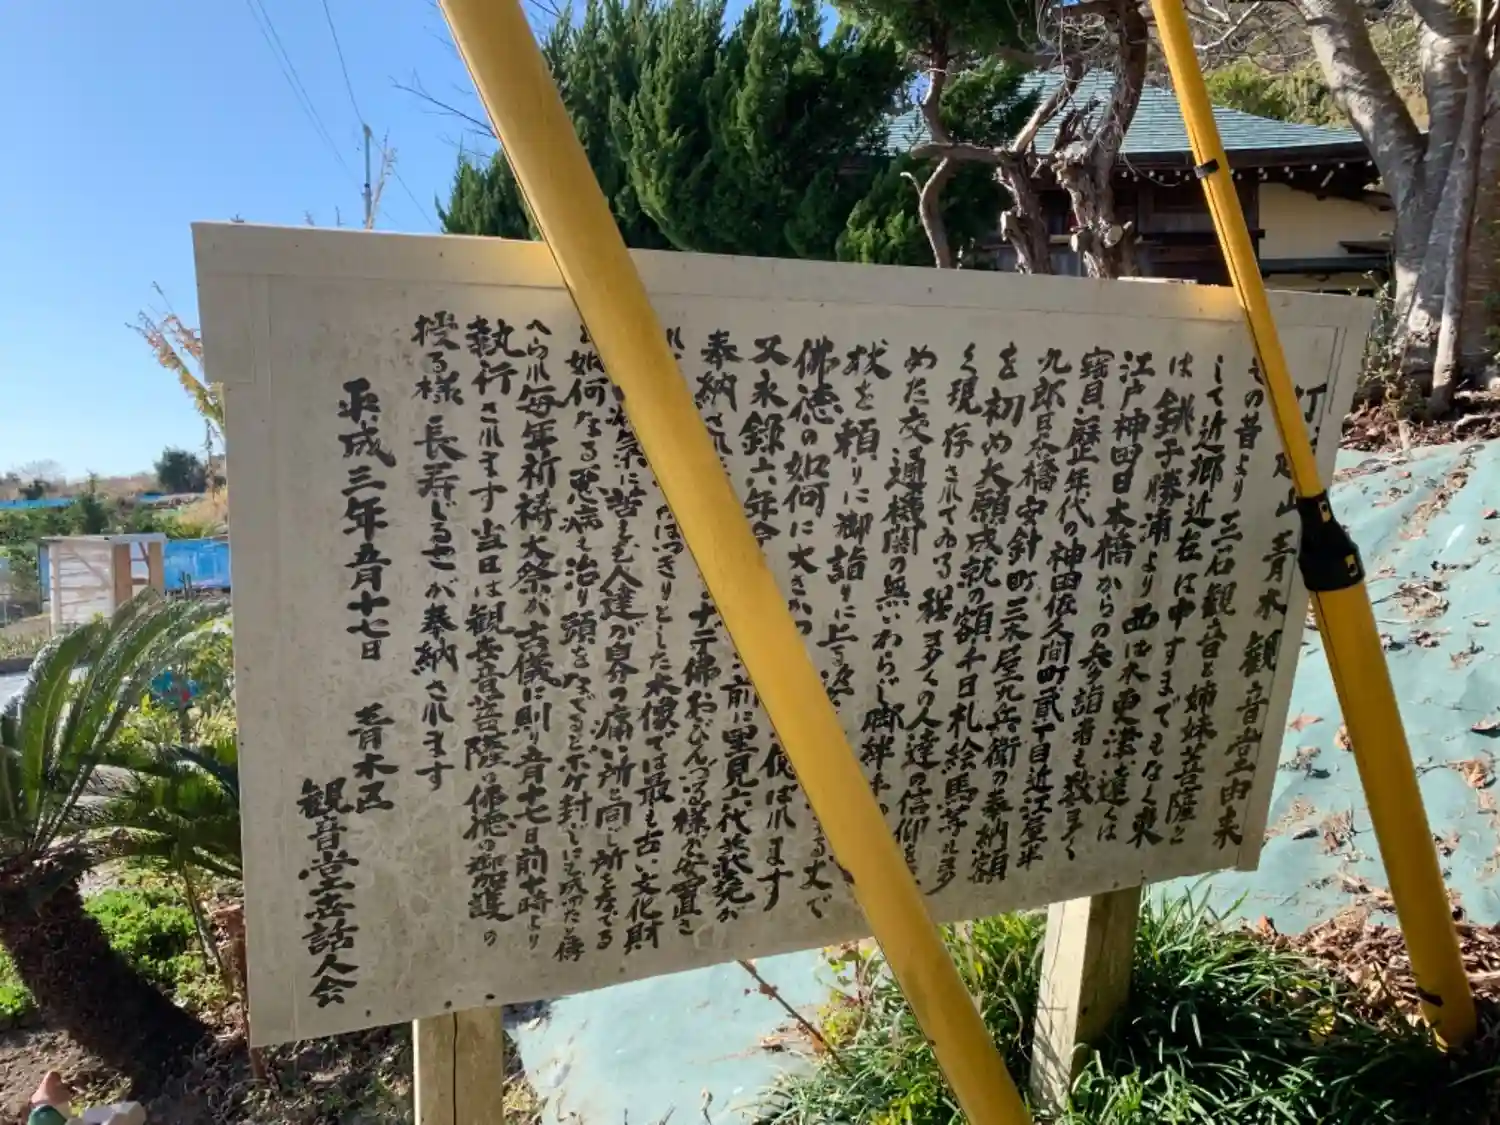 山 青木 観音堂由来
その昔より三石観音と姉妹菩薩と
して近郷近在は申すまでもなく東
は銚子勝浦より西は木更津遠くは
江戸神田日本橋からの参詣者も数多く
寳貝麻正年代の神田佐久間町貮丁目近江屋平
九郎日本橋安針町三木屋九兵衛の奉納額
を初め大願成就の額千日札絵馬等ル多
く現存されてゐる程多くの人達の信仰を
めた交通機関の無いわらじ脚絆
杖を頼りに御詣りに上る
佛徳の如何に大きかつ 丈で
又永録六年 使ばれます
奉納され 前に里見六代義堯が
十二佛おびんづる様が安置さ
はつきりとした木像では最も古い文化財
に苦しむ人達が自分の痛い所と同じ所をなでる
と如何なる悪病も治り頭をなでるとボケ封じにも成つたと傳
へられ毎年祈祷大祭が古儀に則り五月十七日前十時より
執行されます当日は観世音菩薩の佛徳の御加護の
授る様長寿じるこが奉納されます
平成三年五月十七日 青木区
観音堂世話人会